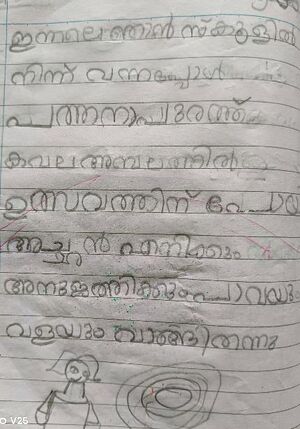 ഇന്നലെ ഞാൻ സ്കൂളിൽ
നിന്ന് വന്നപ്പോൾ
പത്തനാപുരത്ത്
കവല അമ്പലത്തിൽ
ഉത്സവത്തിന് പോയ
അച്ചൻ എനിക്കും
അനുജത്തിക്കും പാവയും
വളയും വാങ്ങിതന്നു
V25